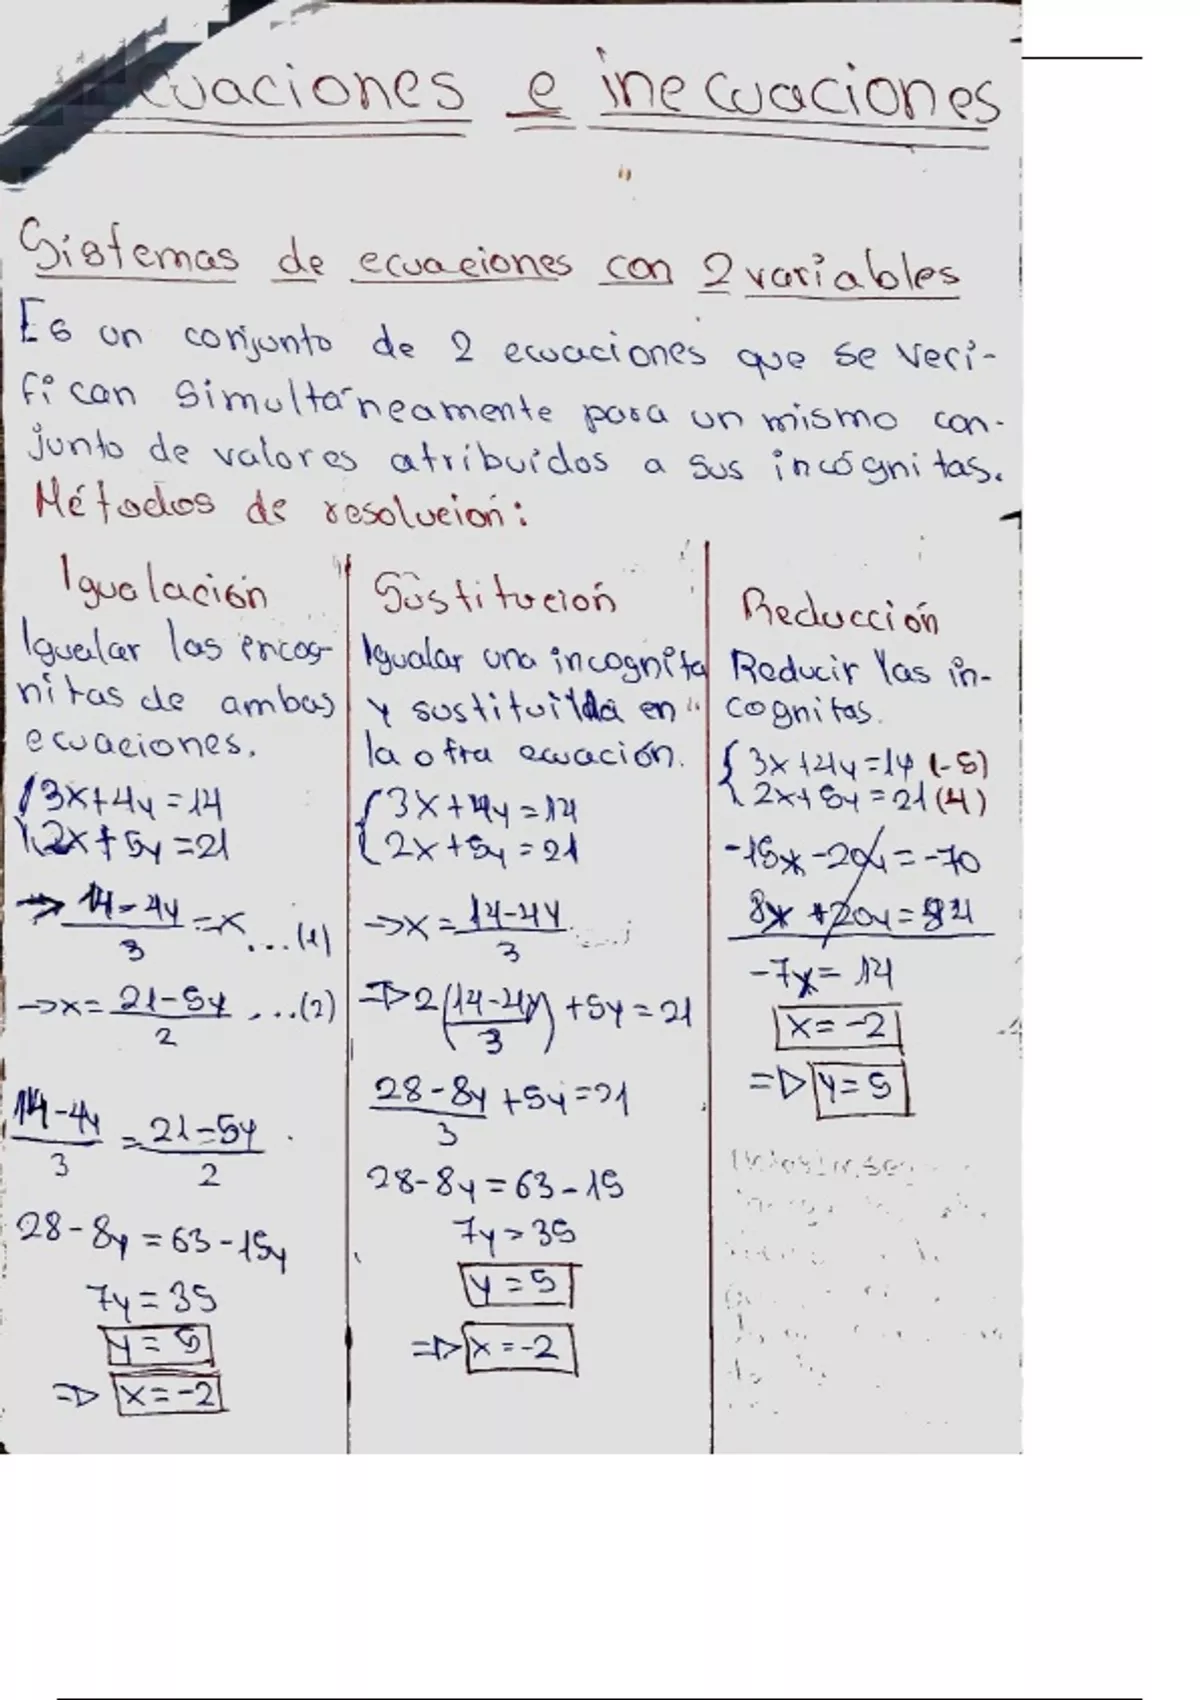 cuaciones e inecuaciones
Sistemas de ecuaciones con 2 variables
Es un conjunto de 2 ecuaciones que se veri-
fican simultáneamente para un mismo con-
junto de valores atribuidos a sus incógnitas.
Métodos de resolución:
Igualación
Igualar las encog-
nitas de ambas
ecuaciones.
3x+4y=14
2x+5y=21
→ 14-4y/3 = x ...(1)
→ x = 21-5y/2 ...(2)
14-4y/3 = 21-5y/2
28-8y=63-15y
7y=35
y=5
⇒ x=-2
Sustitución
Igualar una incognita
y sustituirla en
la otra ecuación.
3x+4y=14
2x+5y=21
→ x = 14-4y/3
⇒ 2(14-4y/3) +5y=21
28-8y/3 +5y=21
28-8y=63-15
7y=35
y=5
⇒ x=-2
Reducción
Reducir las in-
cognitas.
3x+4y=14 (-5)
2x+5y=21 (4)
-15x-20y=-70
8x+20y=84
-7x=14
x=-2
⇒ y=5